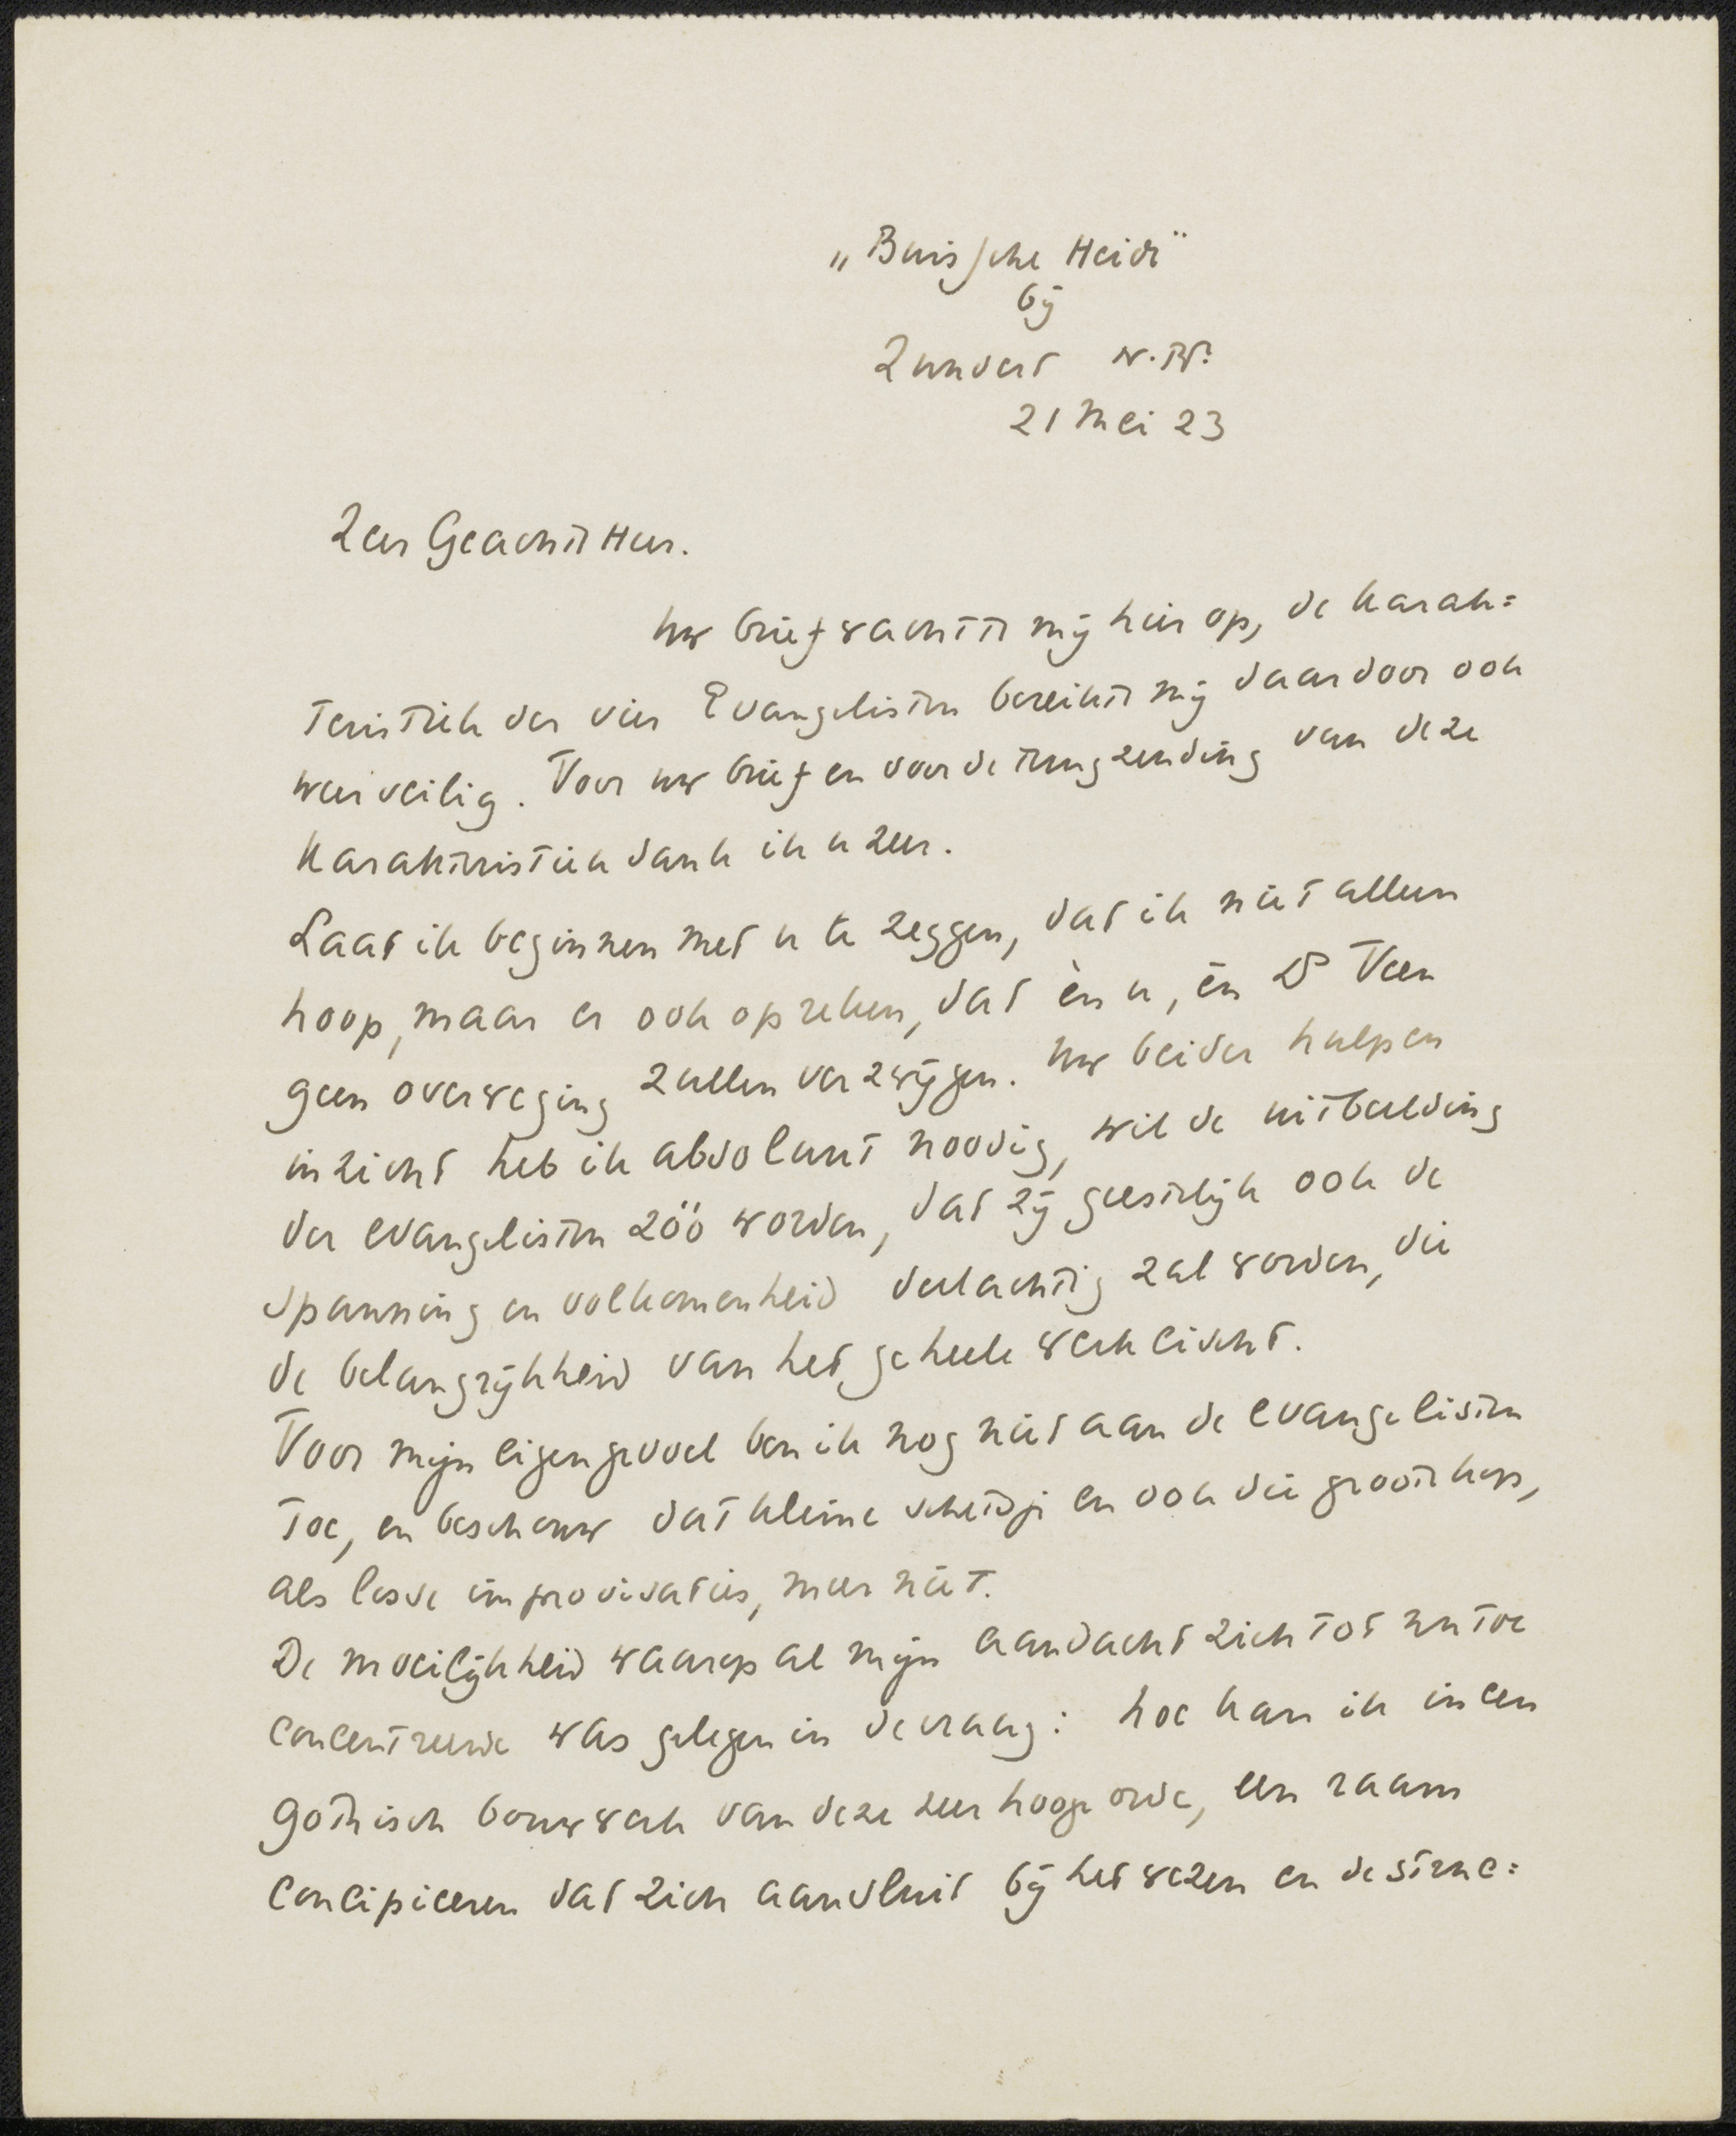 „Buissche Heide"
bij
Zundert N.Br.
21 Mei 23
Zeer Geachte Heer.
Uw brief wachtte mij hier op, de karak=
teristiek der vier Evangelisten bereikte mij daardoor ook
weer veilig. Voor uw brief en voor de terugzending van deze
karakteristiek dank ik u zeer.
Laat ik beginnen met u te zeggen, dat ik niet alleen
hoop, maar er ook op reken, dat èn u, èn Ds Veen
geen overweging zullen verzwijgen. Uw beider hulp en
inzicht heb ik absoluut noodig, wil de uitbeelding
der evangelisten zóó worden, dat zij geestelijk ook de
spanning en volkomenheid deelachtig zal worden, die
de belangrijkheid van het geheele werk eischt.
Voor mijn eigen gevoel ben ik nog niet aan de evangelisten
toe, en beschouw dat kleine schetsje en ook die groote kop,
als losse improvisaties, meer niet.
De moeilijkheid waarop al mijn aandacht zich tot nu toe
concentreerde was gelegen in de vraag: hoe kan ik in een
gothisch bouwwerk van deze zeer hooge orde, een raam
concipieeren dat zich aansluit bij het wezen en de struc=